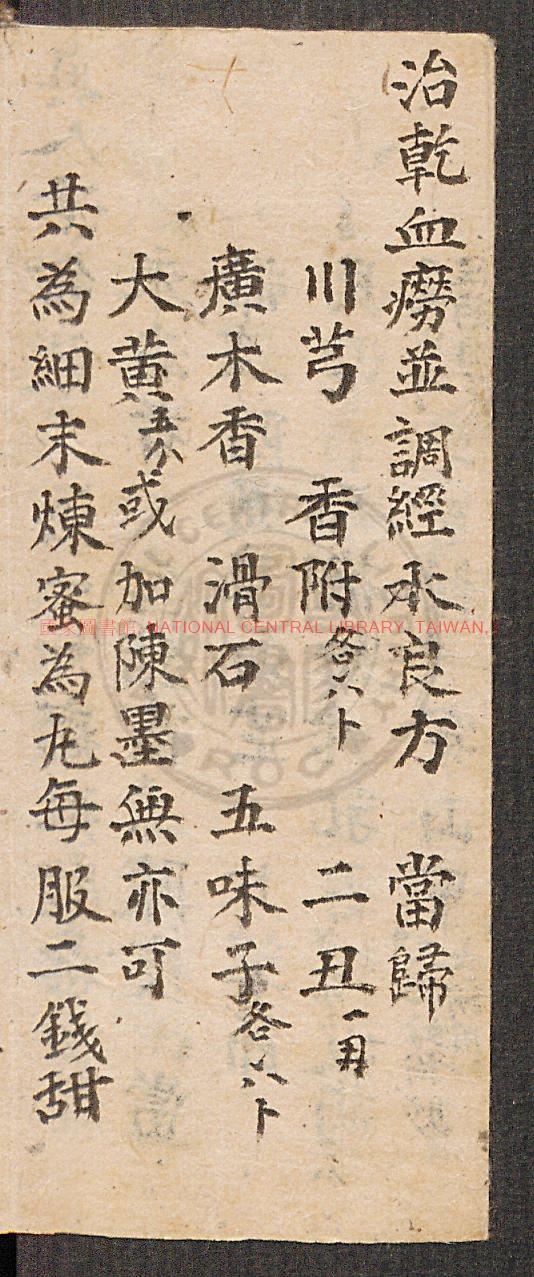 治乾血癆並調經水良方 當歸
川芎 香附各六卜 二丑一兩
廣木香 滑石 五味子各六卜
大黃五分或加陳墨無亦可
共為細末煉蜜為丸每服二錢甜
國家圖書館 NATIONAL CENTRAL LIBRARY, TAIWAN,